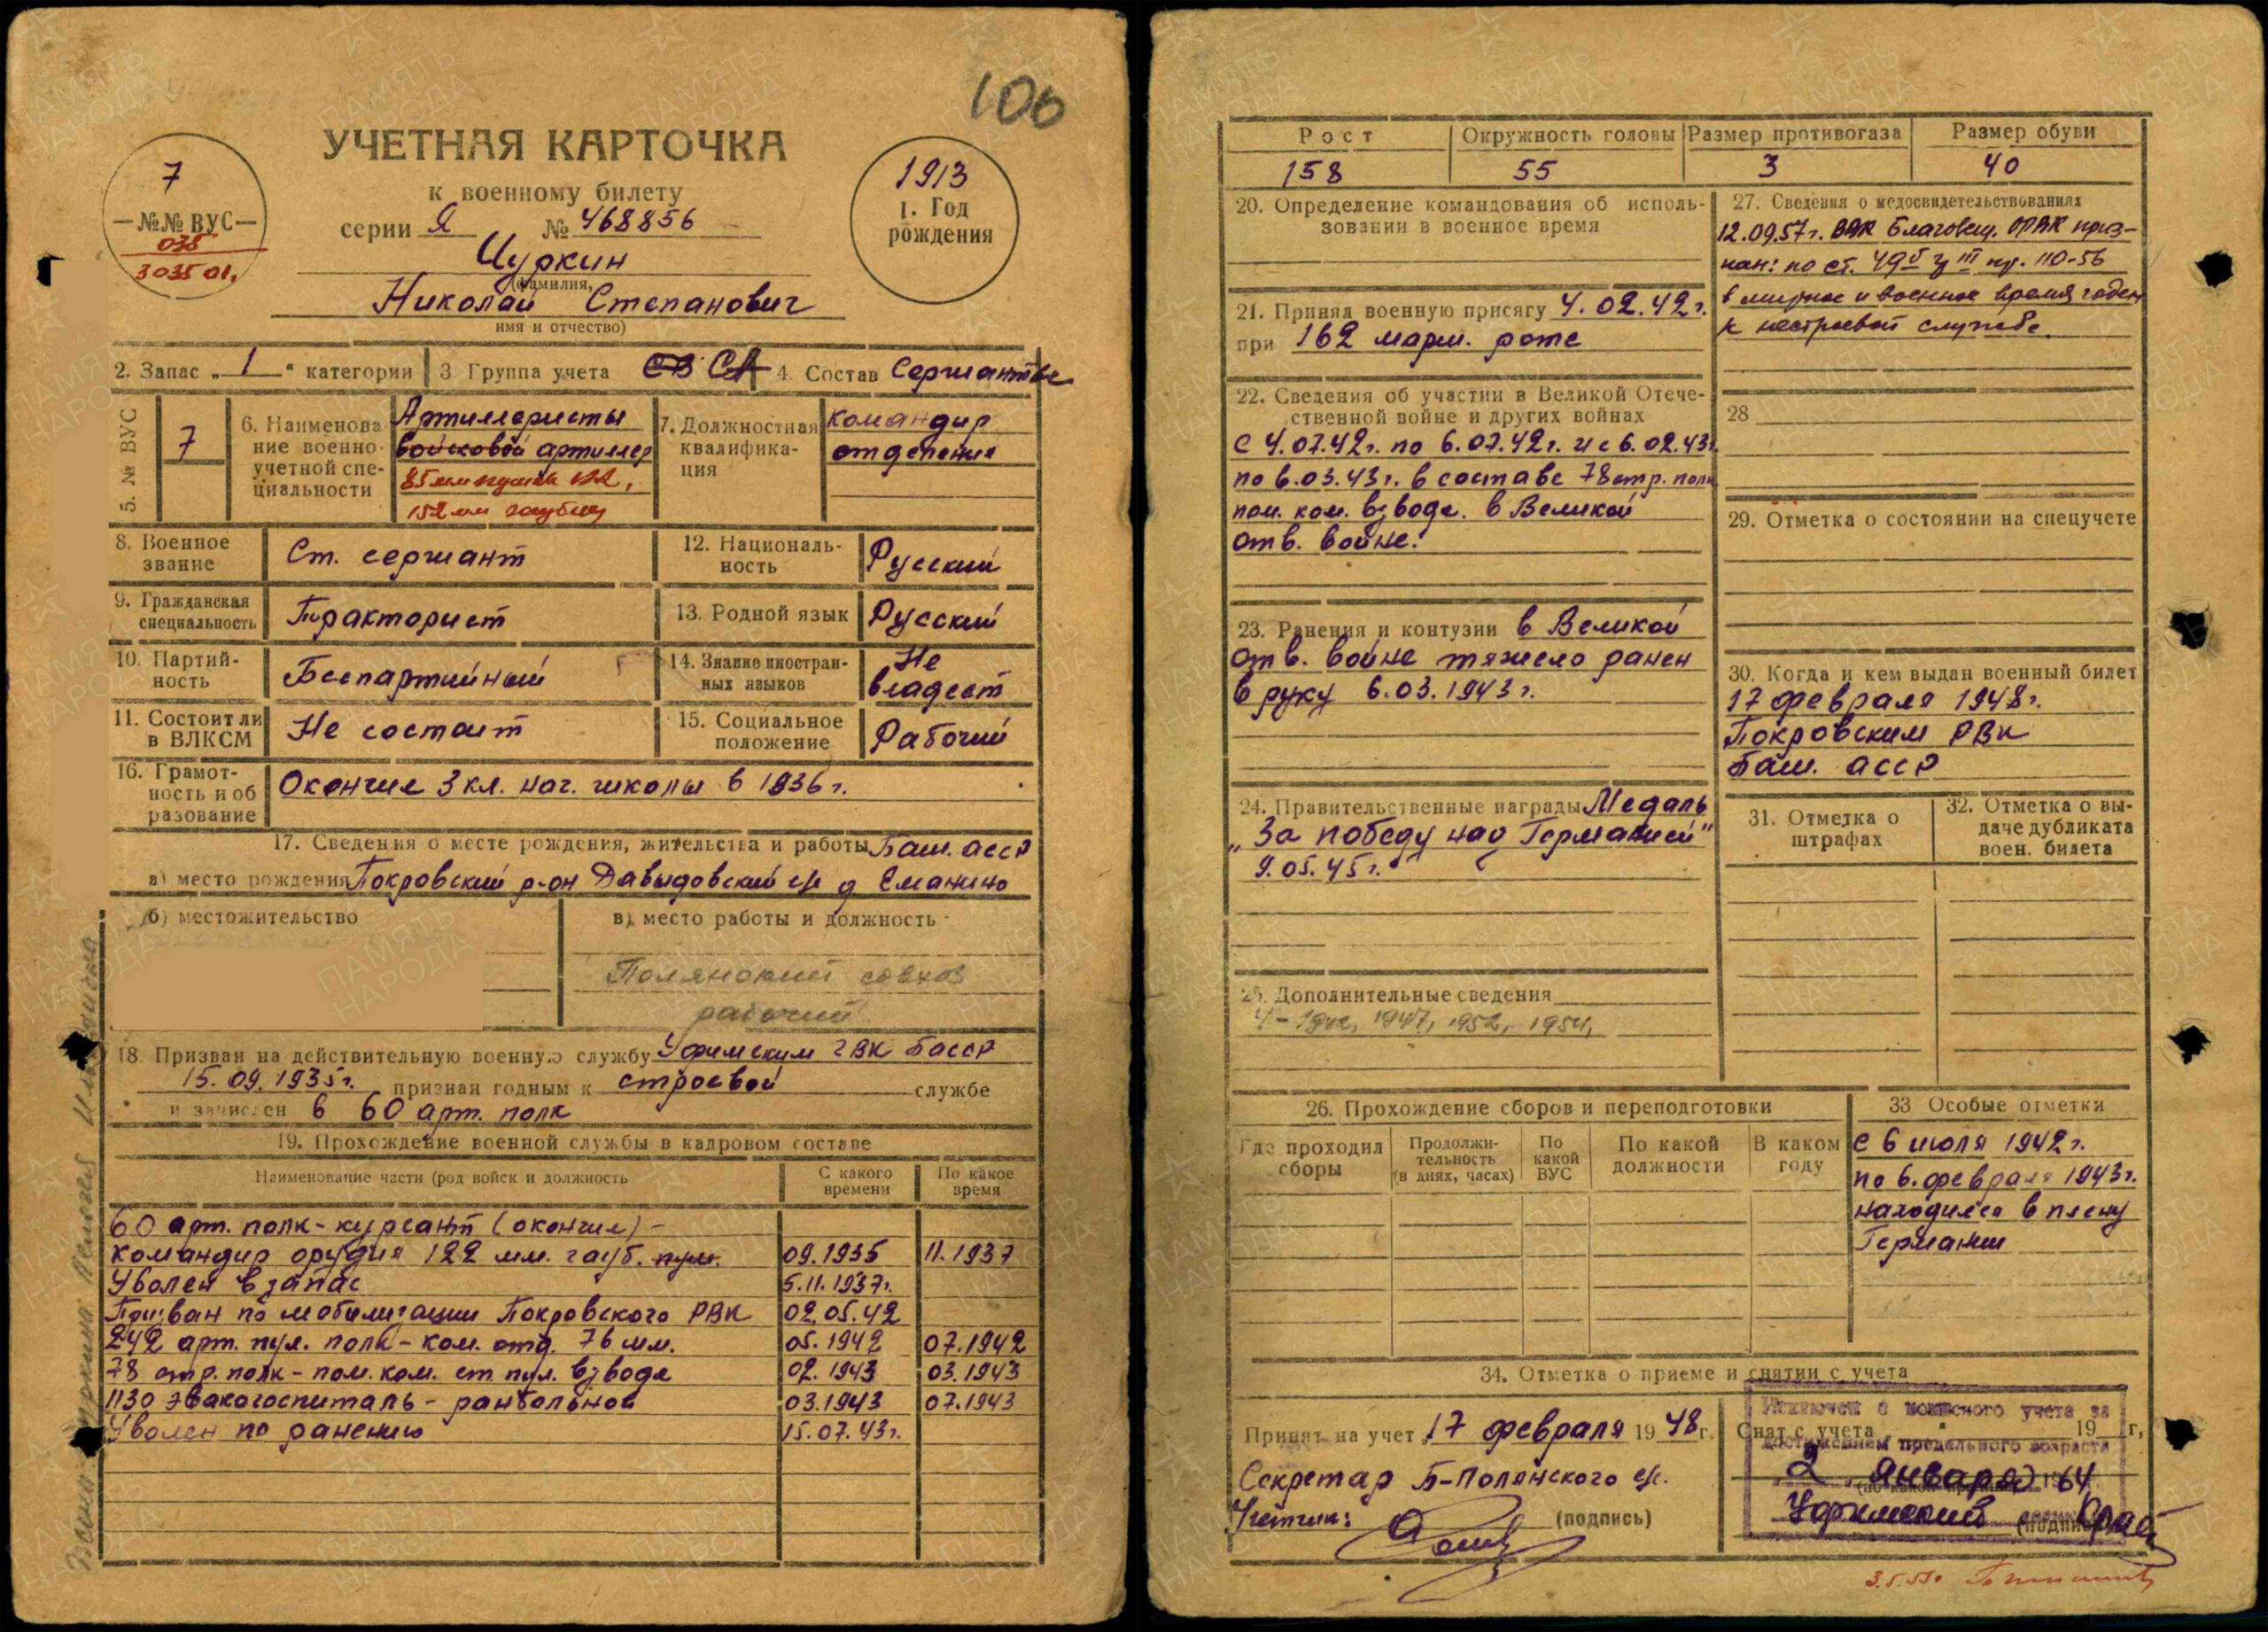 100
УЧЕТНАЯ КАРТОЧКА
к военному билету
серии Я № 468856
7
—№№ ВУС—
035
303501.
1913
1. Год
рождения
Цуркин
(фамилия,
Николай Степанович
имя и отчество)
2. Запас „ 1 “ категории
3 Группа учета СВ СА
4. Состав Сержантск
5. № ВУС
7
6. Наименова
ние военно-
учетной спе-
циальности
Артиллеристы
войсковой артиллер
85 мм пушки
152 мм гаубиц
7. Должностная
квалифика-
ция
командир
отделения
8. Военное
звание
Ст. сержант
9. Гражданская
специальность
Тракторист
10. Партий-
ность
Беспартийный
11. Состоит ли
в ВЛКСМ
Не состоит
12. Националь-
ность
Русский
13. Родной язык
Русский
14. Знание иностран-
ных языков
Не
владеет
15. Социальное
положение
Рабочий
16. Грамот-
ность и об
разование
Окончил 3 кл. нач. школы в 1936 г.
17. Сведения о месте рождения, жительства и работы Баш. асср
а) место рождения Покровский р-он Давыдовский с/с д Еманино
б) местожительство
в) место работы и должность
Полянский совхоз
рабочий
18. Призван на действительную военную службу Уфимским ГВК Басср
15.09.1935г. признан годным к строевой службе
и зачислен в 60 арт. полк
19. Прохождение военной службы в кадровом составе
Наименование части (род войск и должность
С какого
времени
По какое
время
60 арт. полк - курсант (окончил) -
командир орудия 122 мм. гауб. пуш. 09.1935 11.1937
Уволен в запас 5.11.1937г.
Призван по мобилизации Покровского РВК 02.05.42
242 арт. пул. полк - ком. отд. 76 мм. 05.1942 07.1942
78 стр. полк - пом. ком. ст. пул. взвода 02.1943 03.1943
1130 эвакогоспиталь - ранбольной 03.1943 07.1943
Уволен по ранению 15.07.43г.
Рост
158
Окружность головы
55
Размер противогаза
3
Размер обуви
40
20. Определение командования об исполь-
зовании в военное время
21. Принял военную присягу 4.02.42г.
при 162 марш. роте
22. Сведения об участии в Великой Отече-
ственной войне и других войнах
с 4.07.42г. по 6.07.42г. и с 6.02.43г.
по 6.03.43г. в составе 78 стр. полк
пом. ком. взвода. в Великой
отв. войне.
23. Ранения и контузии в Великой
отв. войне тяжело ранен
в руку 6.03.1943г.
24. Правительственные награды Медаль
„За победу над Германией“
9.05.45г.
25. Дополнительные сведения
1947, 1952, 1954,
26. Прохождение сборов и переподготовки
Где проходил
сборы
Продолжи-
тельность
(в днях, часах)
По
какой
ВУС
По какой
должности
В каком
году
27. Сведения о медосвидетельствованиях
12.09.57г. ВВК Благовещ. ОРВК приз-
нан: по ст. 49 б гр III пр. 110-56
в мирное и военное время годен
к нестроевой службе.
28
29. Отметка о состоянии на спецучете
30. Когда и кем выдан военный билет
17 февраля 1948г.
Покровским РВК
Баш. асср
31. Отметка о
штрафах
32. Отметка о вы-
даче дубликата
воен. билета
33 Особые отметки
С 6 июля 1942г.
по 6. февраля 1943г.
находился в плену
Германии
34. Отметка о приеме и снятии с учета
Принят на учет 17 февраля 1948г.
Секретар Б-Полянского с/с.
(подпись)
Снят с учета 19 г,
Исключен с воинского учета за
достижением предельного возраста
2 января 1964
Уфимский
(подпись)
ПАМЯТЬ
НАРОДА